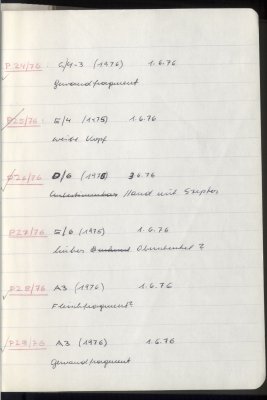 P.24/76: G/4-3 (1976) 1.6.76
Gewandfragment
P25/76: E/4 (1975) 1.6.76
weibl. Kopf
P26/76 D/6 (1975) 3.6.76
Hand mit Szepter
P27/76 E/6 (1975) 1.6.76
linker Oberschenkel?
P28/76 A3 (1976) 1.6.76
Fleischfragment?
P29/76 A3 (1976) 1.6.76
Gewandfragment